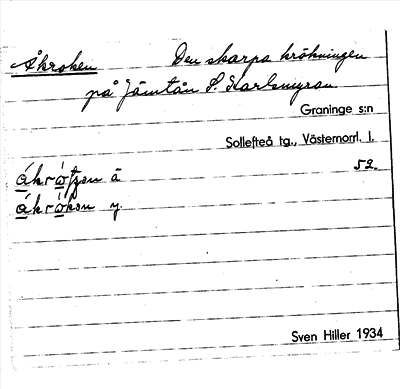 Åkroken Den skarpa krökningen
på Jämtån S. Karlsmyran.
Graninge s:n
Sollefteå tg., Västernorrl. l.
ákrò̱tjen ä 52.
ákrò̱ken y.
Sven Hiller 1934